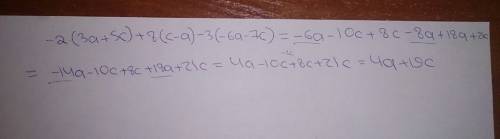 -2(3a+5c)+8(c-a)-3(-6a-7c) = -6a-10c+8c-8a+18a+21c
= -14a-10c+8c+18a+21c = 4a-10c+8c+21c = 4a+19c